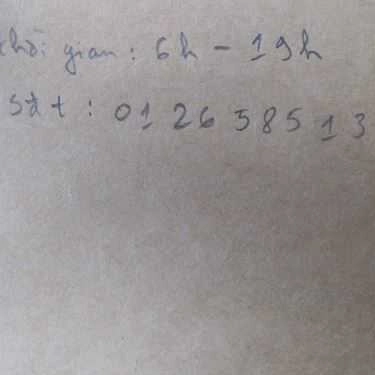 thời gian: 6h - 19h
sđt: 01 26 585 13